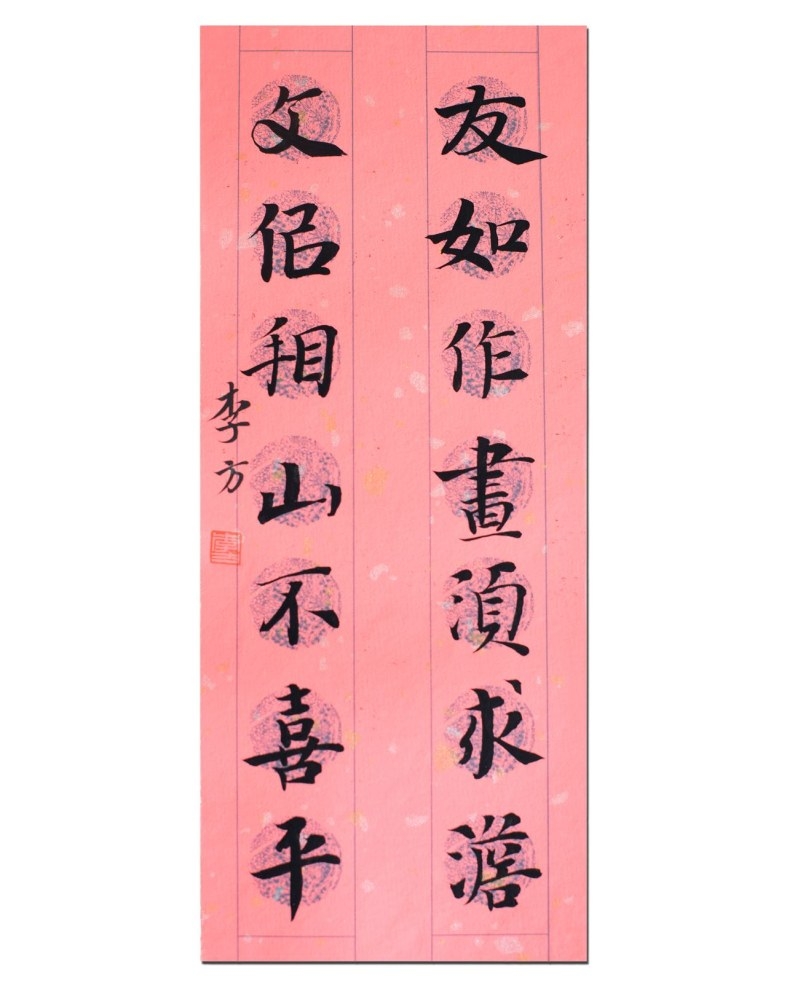 友如作畫湏求澹
文佀看山不喜平
李方